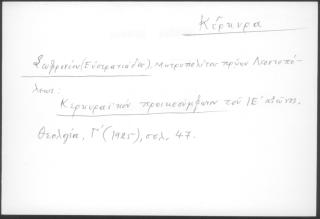 Κέρκυρα
Σωφρονίου (Εὐστρατιάδου), Μητροπολίτου πρώην Λεοντοπό-
λεως:
Κερκυραϊκὸν προικοσύμφωνον τοῦ ΙΕ΄ αἰῶνος,
Θεολογία, Γ΄ (1925), σελ. 47.